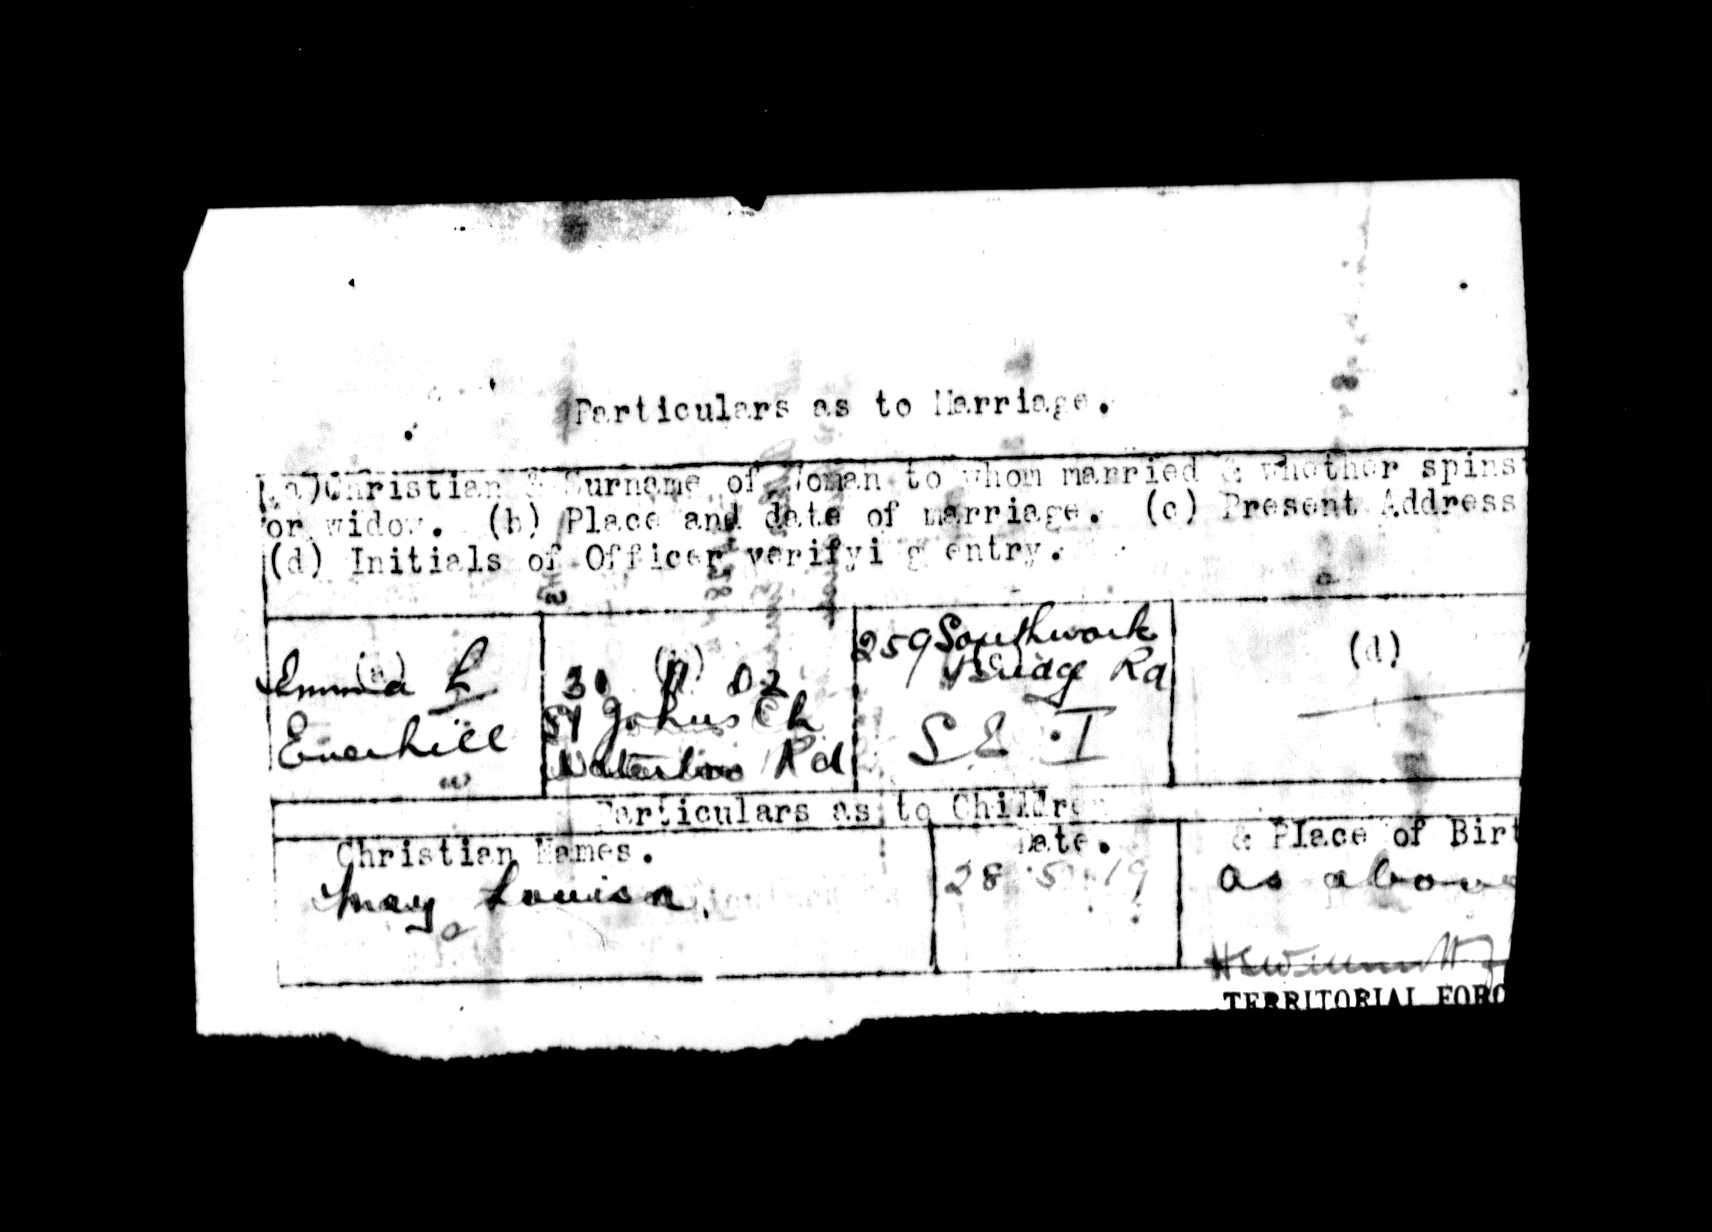 Particulars as to Marriage.
(a) Christian & Surname of Woman to whom married & whether spins
or widow. (b) Place and date of marriage. (c) Present Address
(d) Initials of Officer verifyi g entry.
(a) (b) (d)
Emma L
Everhill
St Johns Ch
Waterloo Rd
259 Southwark
Bridge Rd
S E . I
Particulars as to Childre
Christian Names. Date. & Place of Birt
May Louisa 28 . 5 . 19 as above
TERRITORIAL FORC